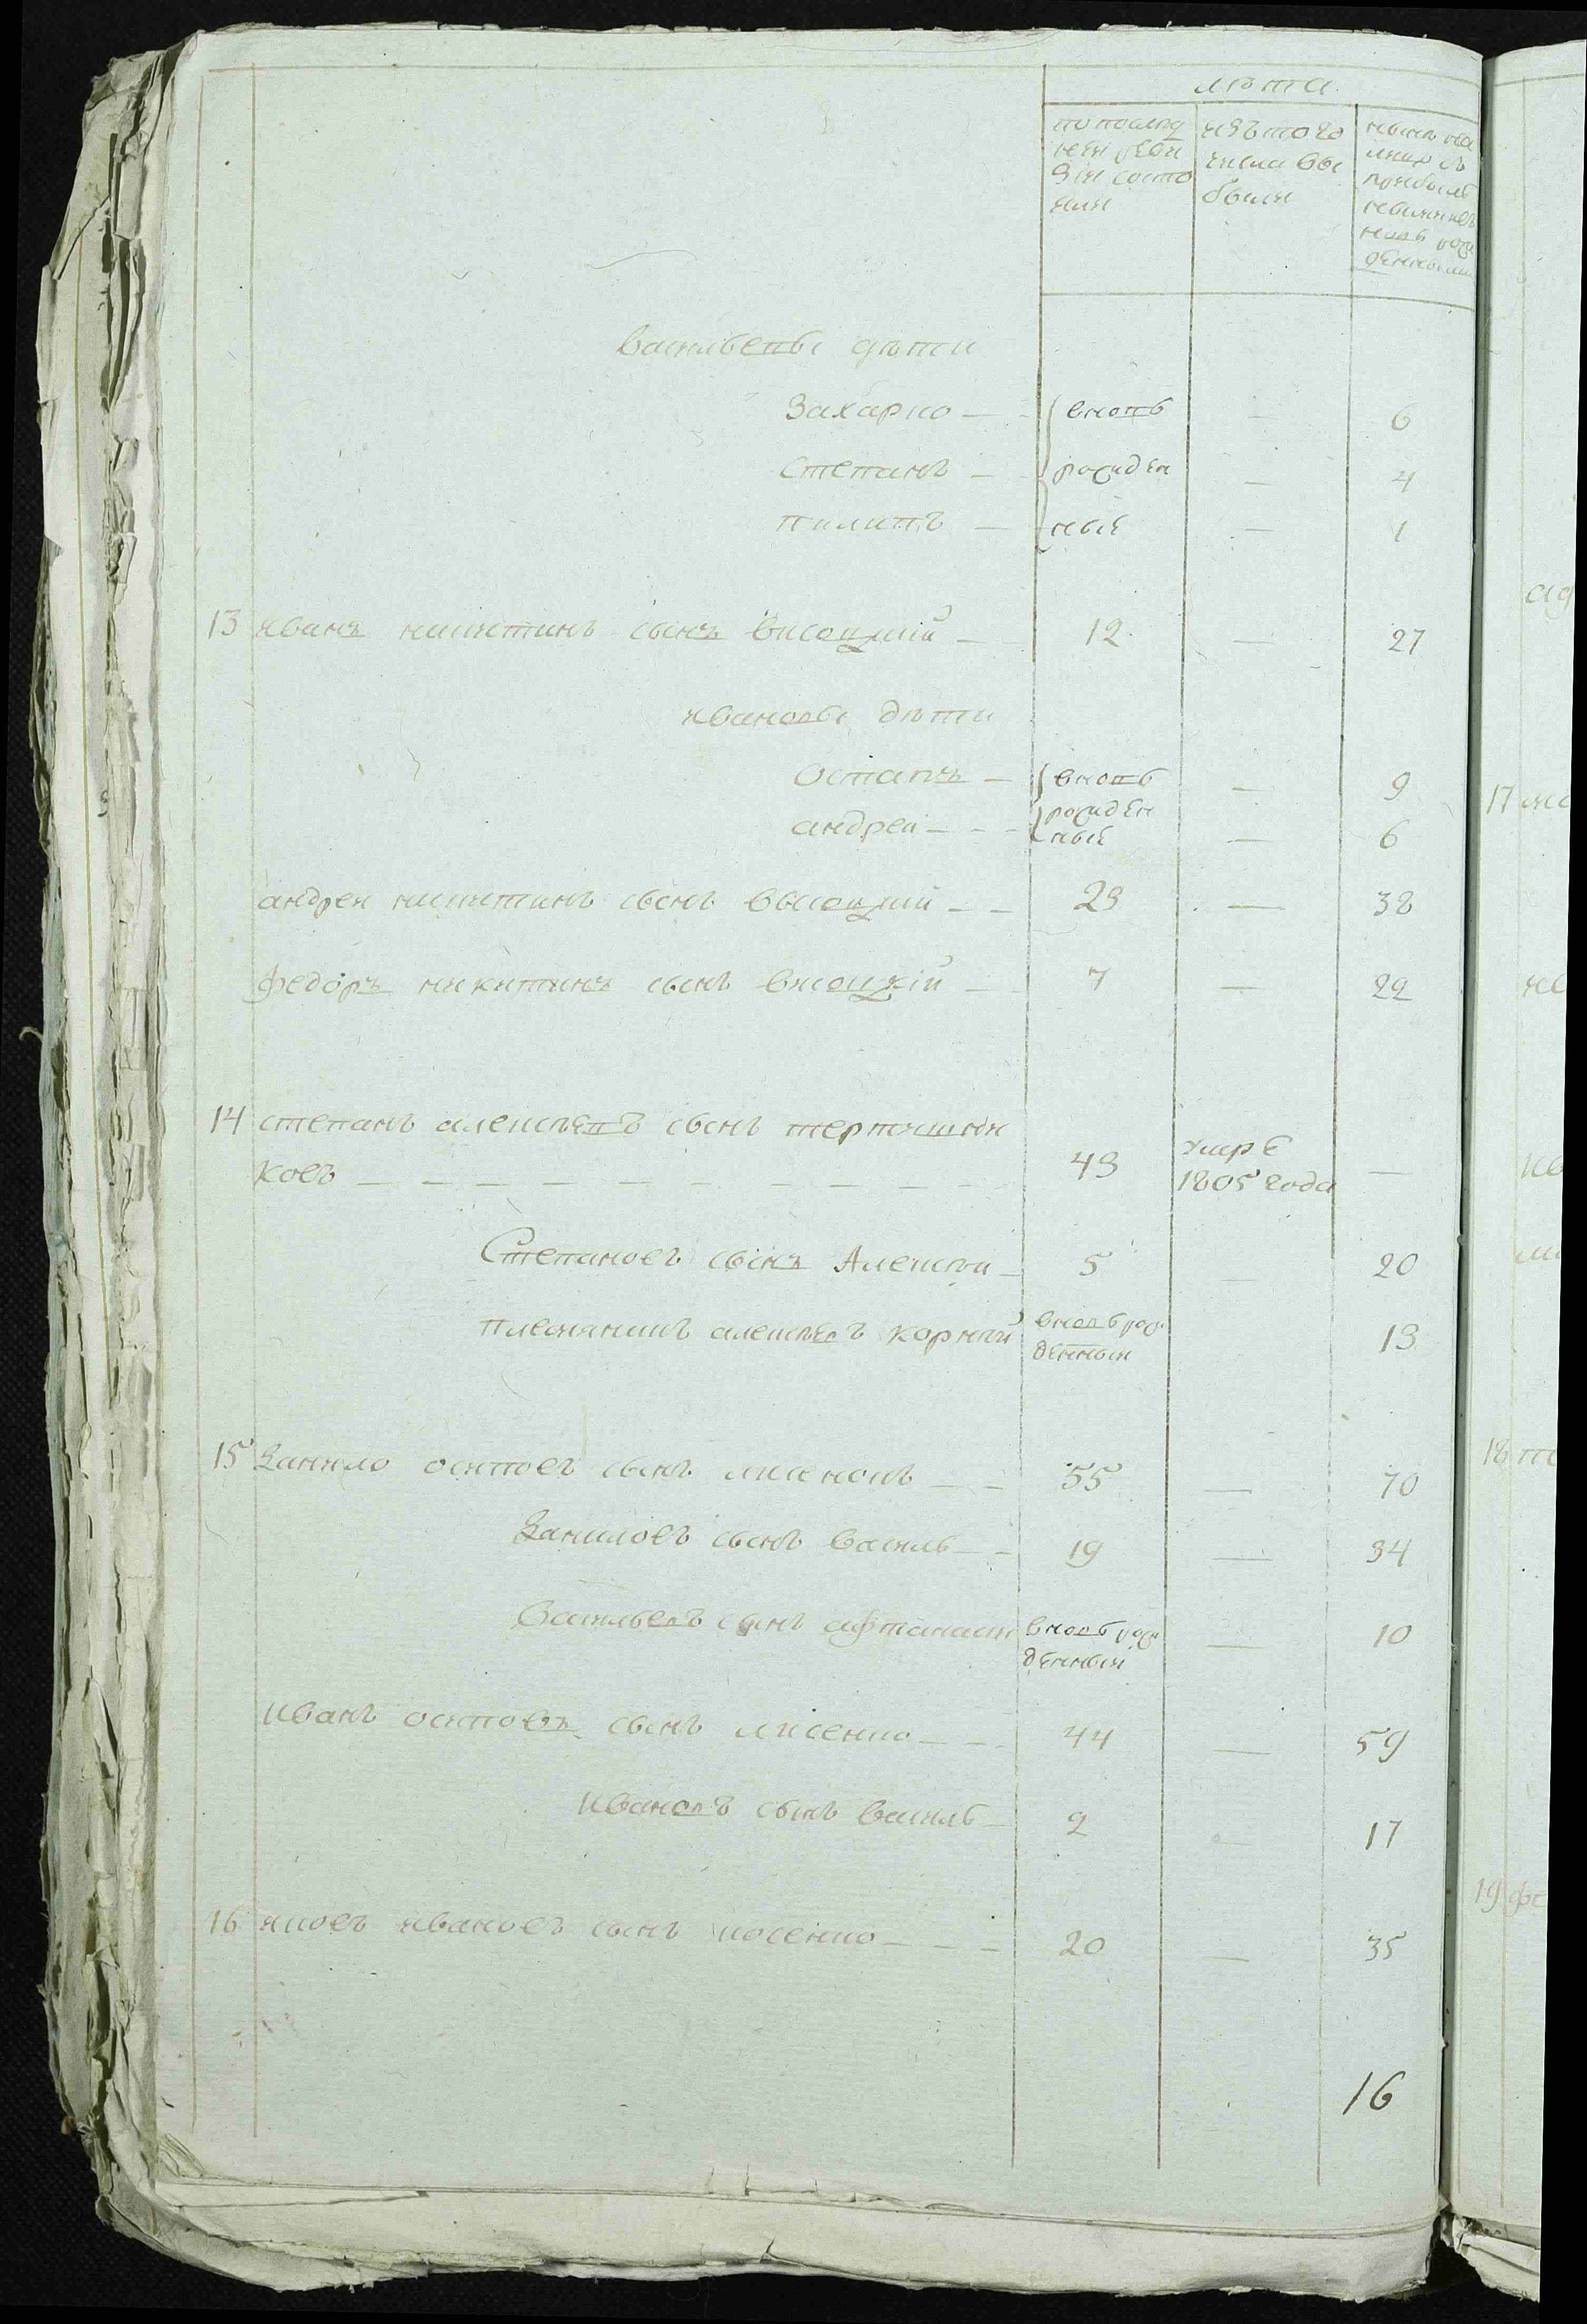 лѣта
по послѣд
ней реви
зіи состо
яли
изъ того
числа вы
были
нынѣ на
лицо съ
прибылы
ми и вновь рож
денными
васильевы дѣти
Захарко — вновь — 6
Степанъ — рожден — 4
пилипъ — ные — 1
13 иванъ никитинъ сынъ висоцкій — 12 — 27
ивановы дѣти
Остапъ — вновь — 9
андреи — рожден
ные — 6
андреи никитинъ сынъ высоцкій — 23 — 38
федоръ никитинъ сынъ висоцкій — 7 — 22
14 степанъ алексѣевъ сынъ тертишни
ковъ — 43 умре
1805 года —
Степановъ сынъ Алексѣи — 5 — 20
племянникъ алексѣевъ корнѣй вновь рож
денныи 13
15 Данило осиповъ сынъ лисенокъ — 55 — 70
Даниловъ сынъ василь — 19 — 34
Васильевъ сынъ афтанасіи вновь рож
денныи — 10
иванъ осиповъ сынъ лисенко — 44 — 59
Ивановъ сынъ василь — 2 — 17
16 яковъ ивановъ сынъ косенко — 20 — 35
16
17
18
19 фе